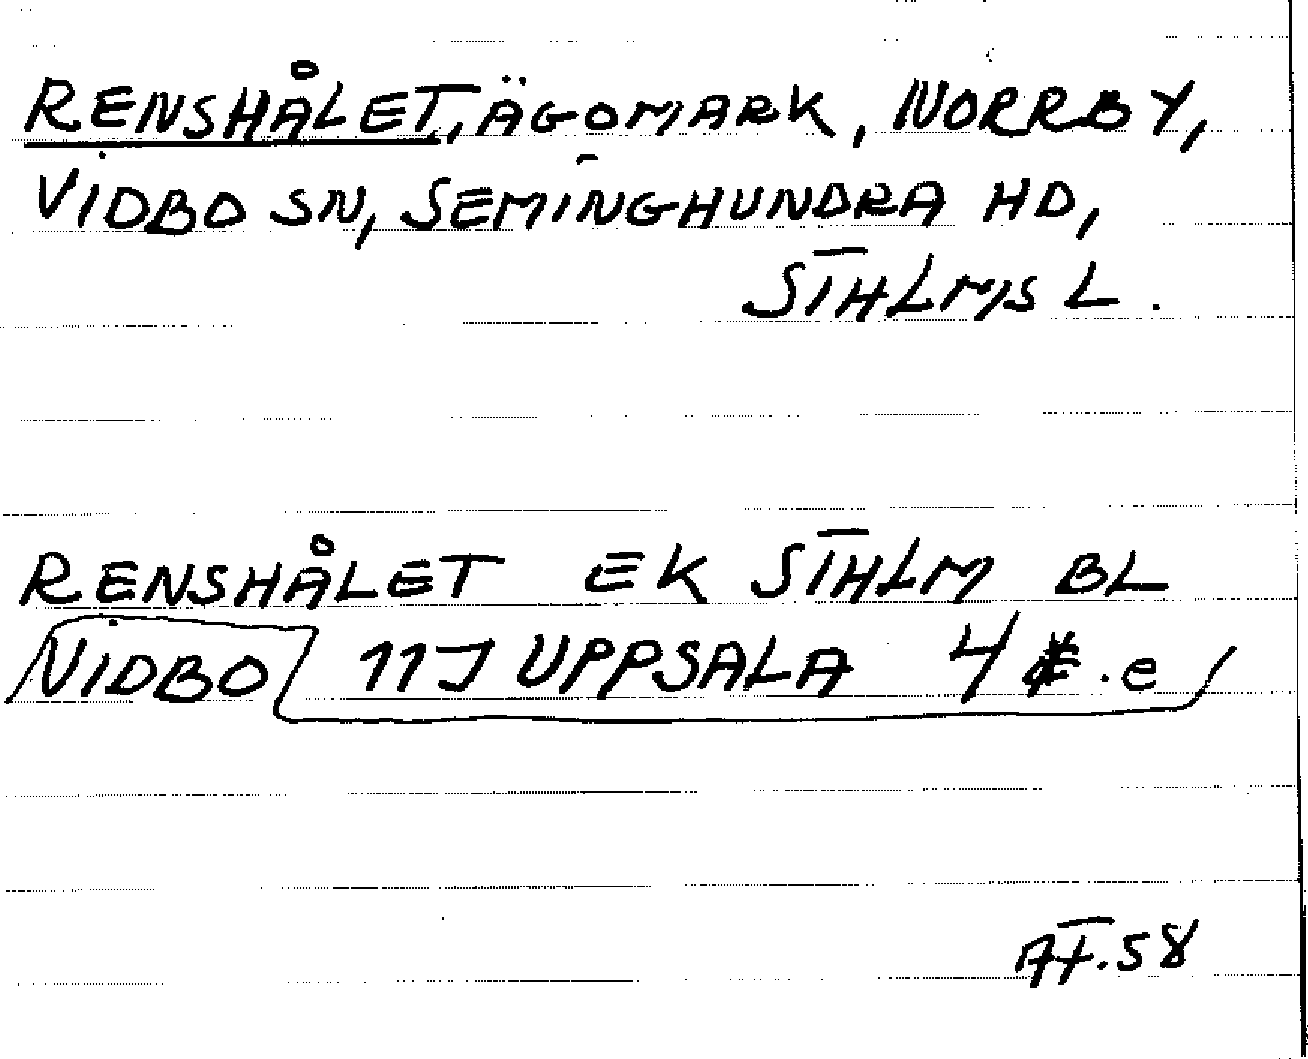 RENSHÅLET, ÄGOMARK, NORRBY,
VIDBO SN, SEMINGHUNDRA HD,
STHLMS L.
RENSHÅLET EK STHLM BL
VIDBO 11J UPPSALA 4 .e
AF.58